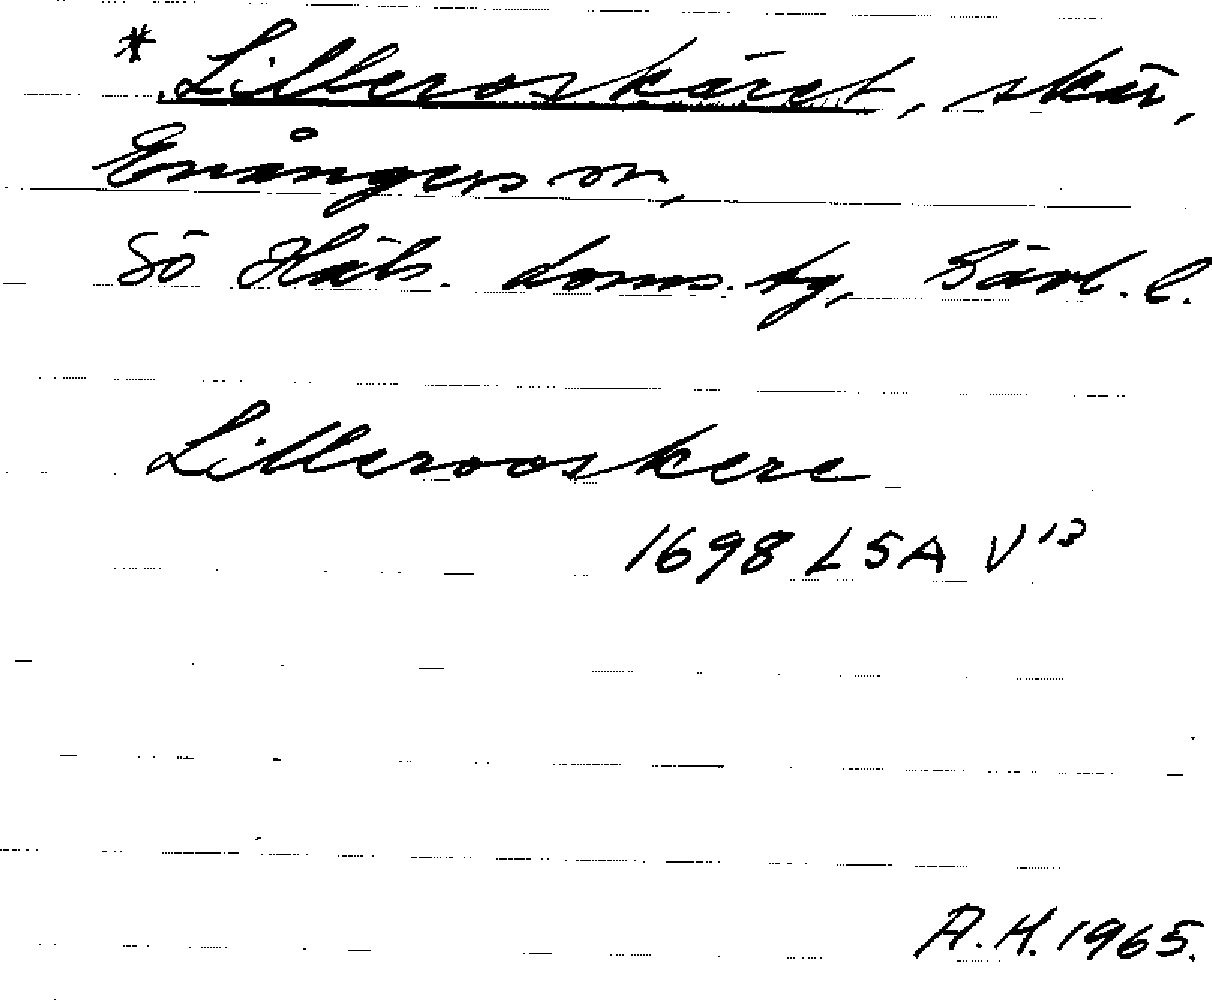 * Lilleroskäret, skär,
Enångers sn,
Sö Häls. doms. tg, Gävl. l.
Lillerooskere
1698 LSA V 13
A.H. 1965.